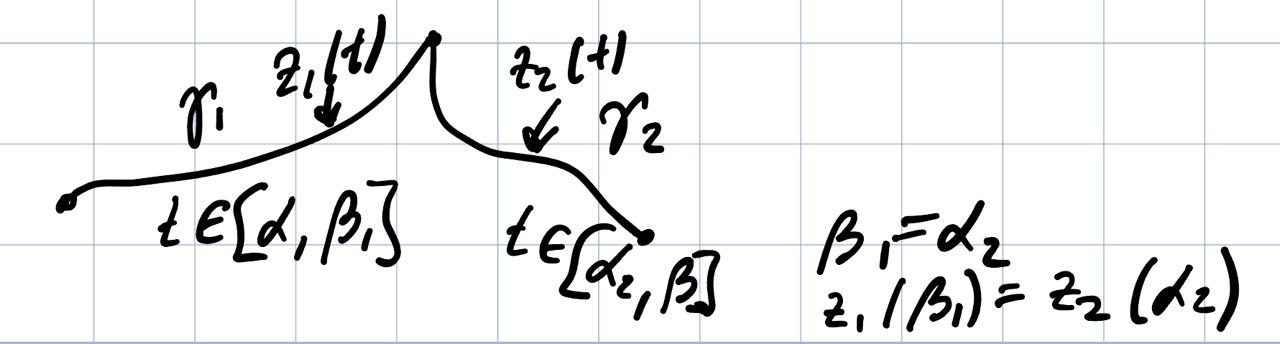 γ₁ z₁(t) z₂(t) γ₂
t ∈ [α, β₁] t ∈ [α₂, β]
β₁ = α₂
z₁(β₁) = z₂(α₂)